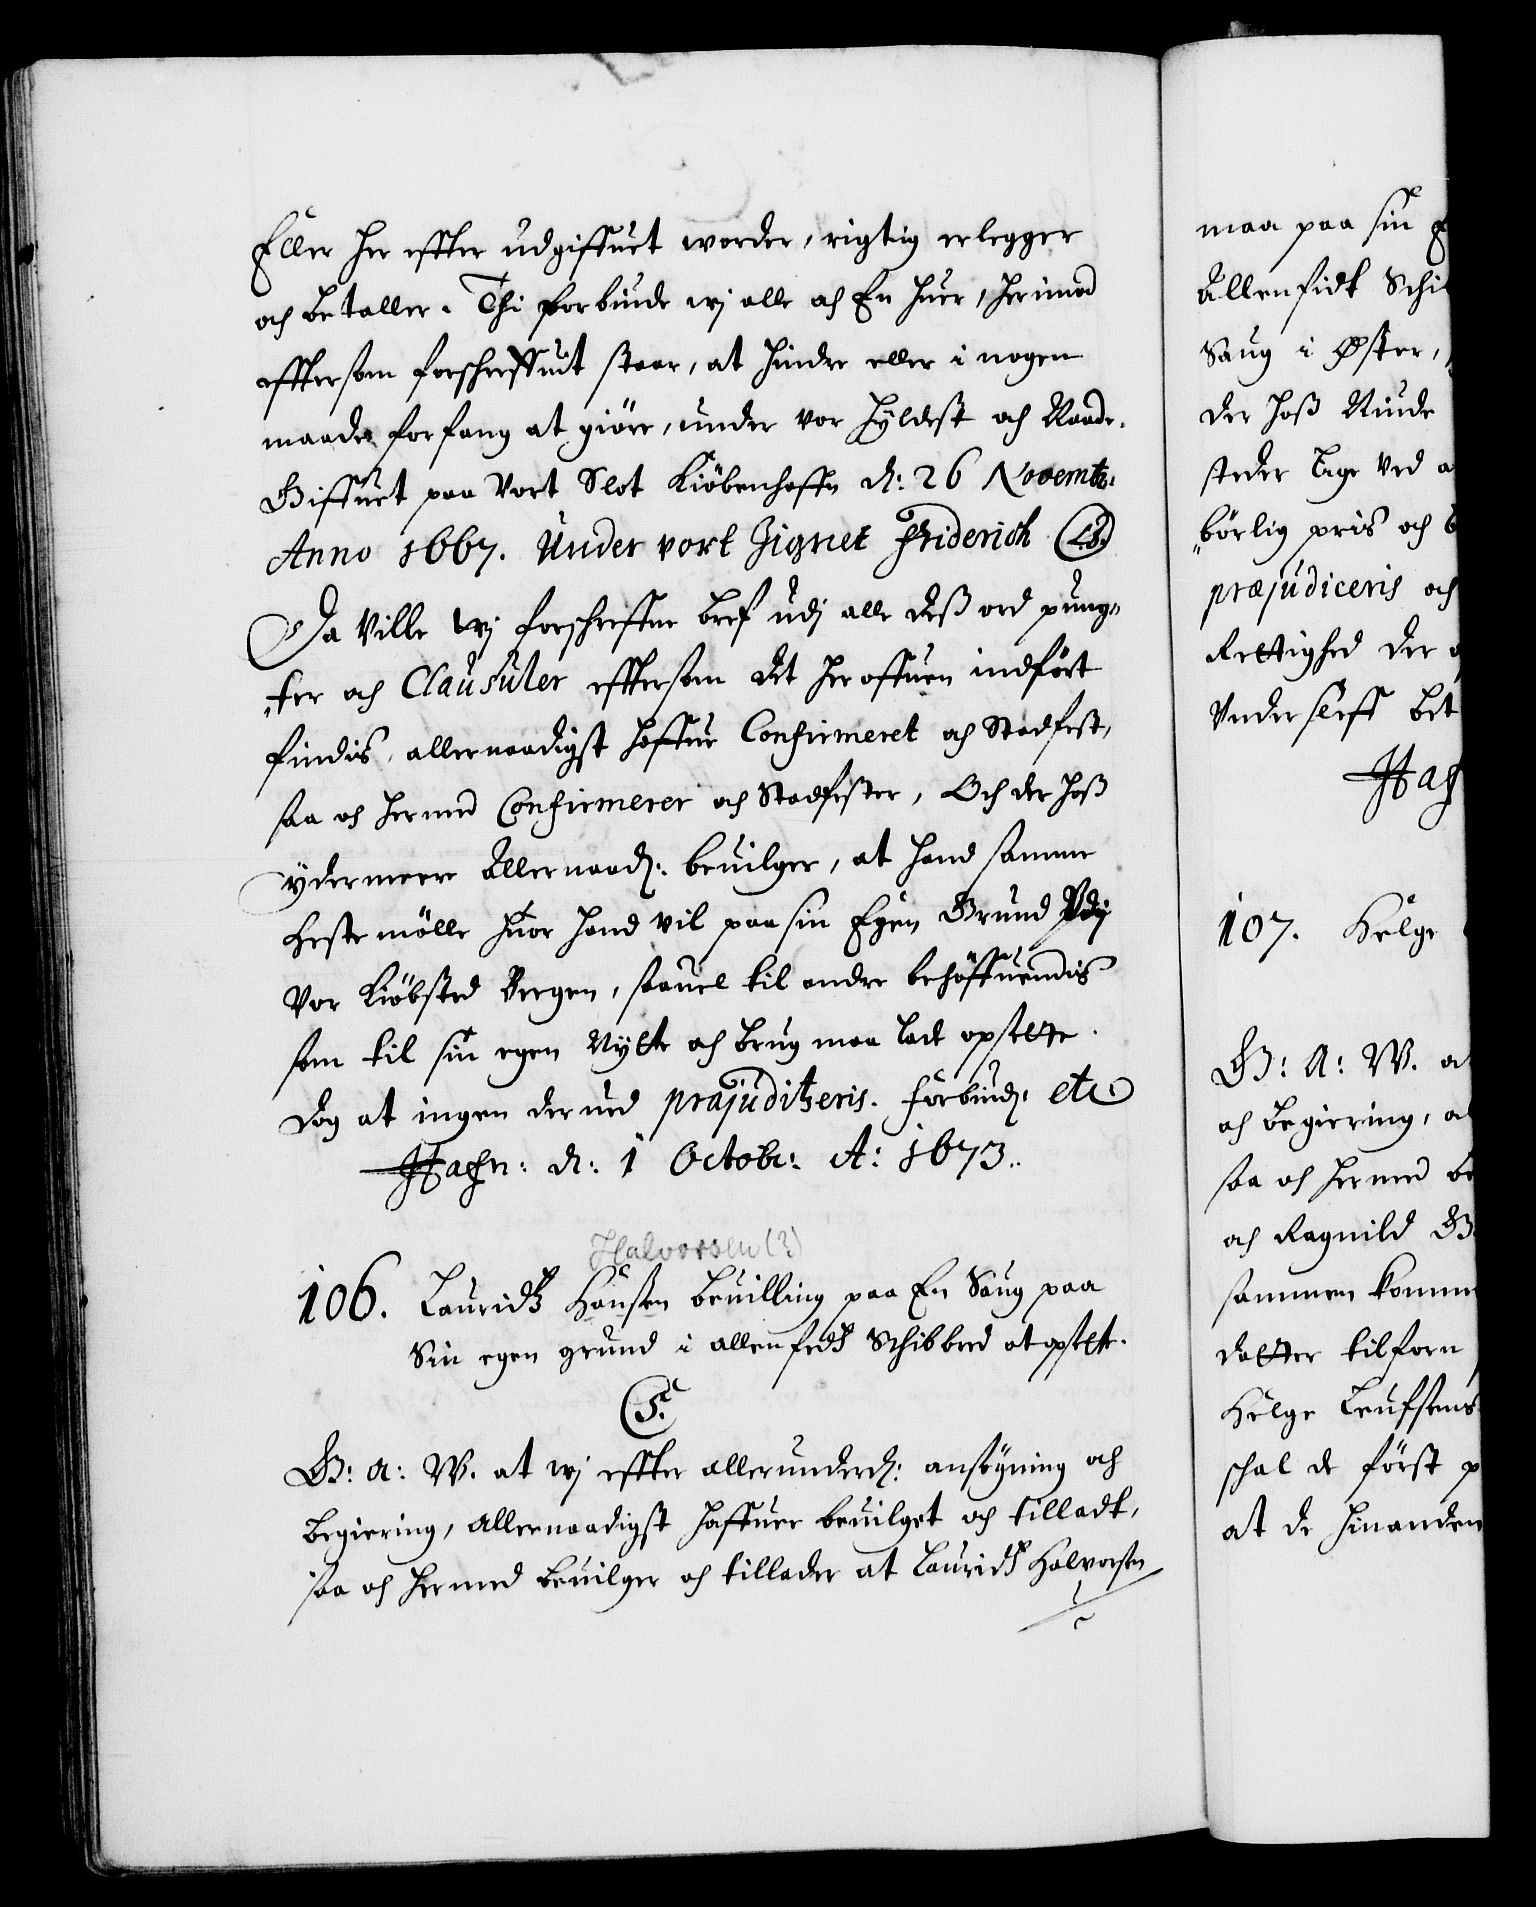 Eller her effter udgiffuet worder, rigtig erlegger
och betaller. Thi forbinde wj alle och En huer, herimod
efftersom forschreffuit staar, at hindre eller i nogen
maade forfang at giöre, under vor hyldest och Naade.
Giffuet paa Vort Slot Kiöbenhaffn d: 26 Novembr:
Anno 1667. Under vort Zignet Friderich (L.S.)
Da Ville wj forschreffne bref udj alle dess ord pung„
„ter och Clausuler efftersom det her offuen indfört
findis, allernaadigst haffue Confirmeret och Stadfest,
saa och hermed Confirmerer och Stadfester, Och der hoss
ydermeere Allernaad: beuilger, at hand samme
Hestemölle huor hand vil paa sin Egen Grund Vdj
Vor Kiöbsted Bergen, saauel til andre behöffuendis
som til sin egen Nytte och brug maa lade opsette.
dog at ingen dermed præjuditzeris. Forbind: etc
Hafn: d: 1 Octobr: A: 1673..
Halvorsen (?)
106. Lauridtz Hansen beuilling paa En Saug paa
Sin egen grund i allenfidtz Schibbred at opsette.
C5.
G: A: W. at wj effter allerunderd: ansögning och
begiering, allernaadigst haffuer beuilget och tilladt,
saa och hermed beuilger och tillader at Lauridtz Halvorsen
maa paa sin E
Allenfidt Schi
Saug i Øster,
der hoss Runde
steder lage ved a
„börlig pris och b
præjudiceris och
Rettighed der a
Vndersleff bet
Haf
107. Helge
G: A: W. at
och begiering, al
saa och hermed be
och Ragnild G
sammen komm
datter tilforn
Helge Leufsens
schal de först p
at de hinanden